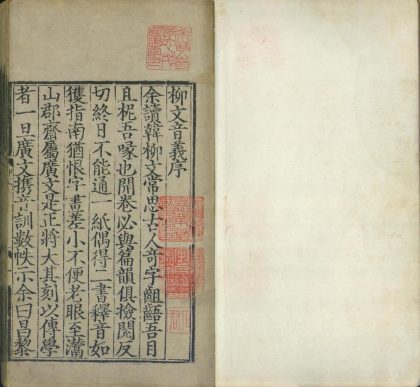 柳文音義序
余讀韓柳文常思古人奇字齟齬吾目
且柅吾喙也開卷必與篇韻俱檢閱反
切終日不能通一紙偶得二書釋音如
獲指南猶恨字畫差小不便老眼至灊
山郡齋屬廣文是正將大其刻以傳學
者一旦廣文攜音訓數帙示余曰昌黎